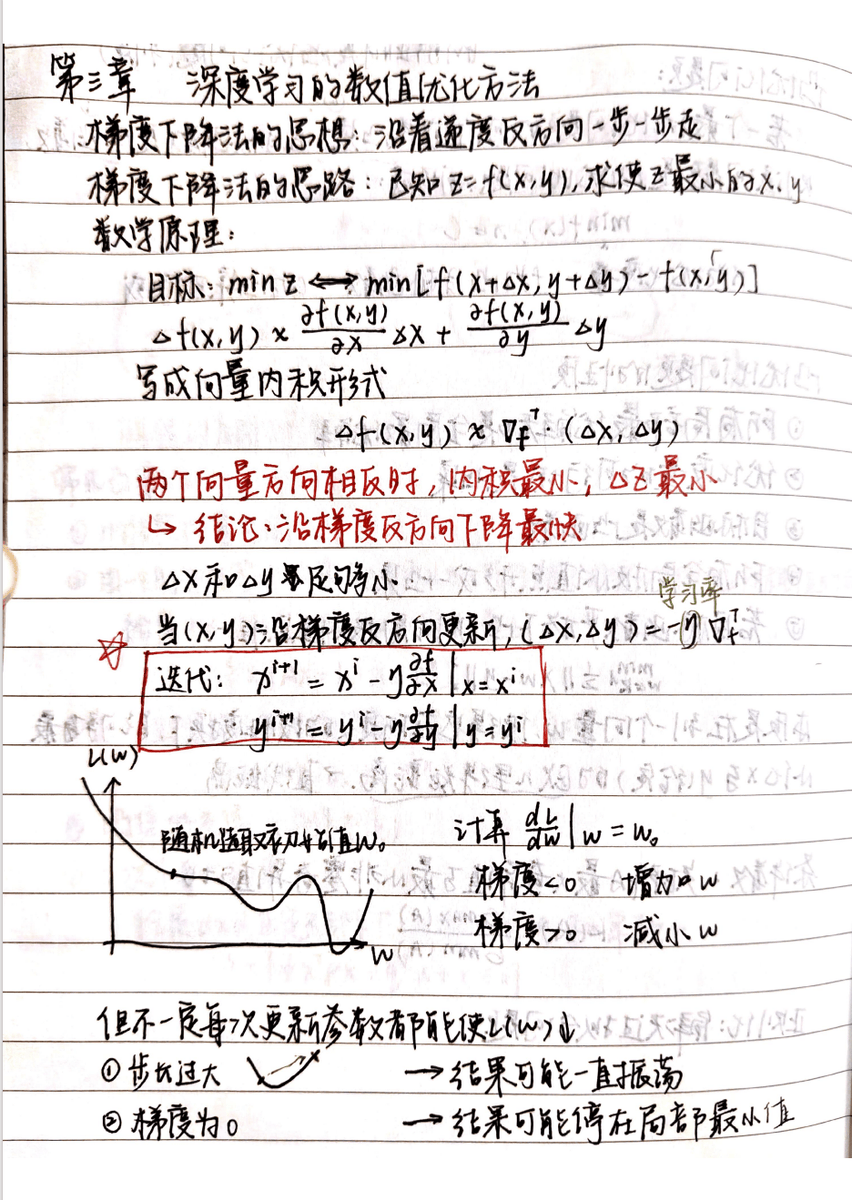 第三章 深度学习的数值优化方法
梯度下降法的思想：沿着递度反方向一步一步走
梯度下降法的思路：已知z=f(x,y),求使z最小的x,y
数学原理：
目标：min z ⟺ min[f(x+Δx,y+Δy)-f(x,y)]
Δf(x,y) ≈ ∂f(x,y)/∂x Δx + ∂f(x,y)/∂y Δy
写成向量内积形式
Δf(x,y) ≈ ∇f^T·(Δx,Δy)
两个向量方向相反时，内积最小，Δz最小
↳ 结论：沿梯度反方向下降最快
Δx和Δy 足够小
学习率
当(x,y)沿梯度反方向更新，(Δx,Δy)=-η∇f^T
☆ 迭代：x^{i+1} = x^i - η ∂f/∂x | x=x^i
y^{i+1} = y^i - η ∂f/∂y | y=y^i
L(w)
随机选取初始值w₀
计算 dL/dw | w=w₀
梯度<0 增加w
梯度>0 减小w
w
但不一定每次更新参数都能使L(w)↓
① 步长过大 → 结果可能一直振荡
② 梯度为0 → 结果可能停在局部最小值